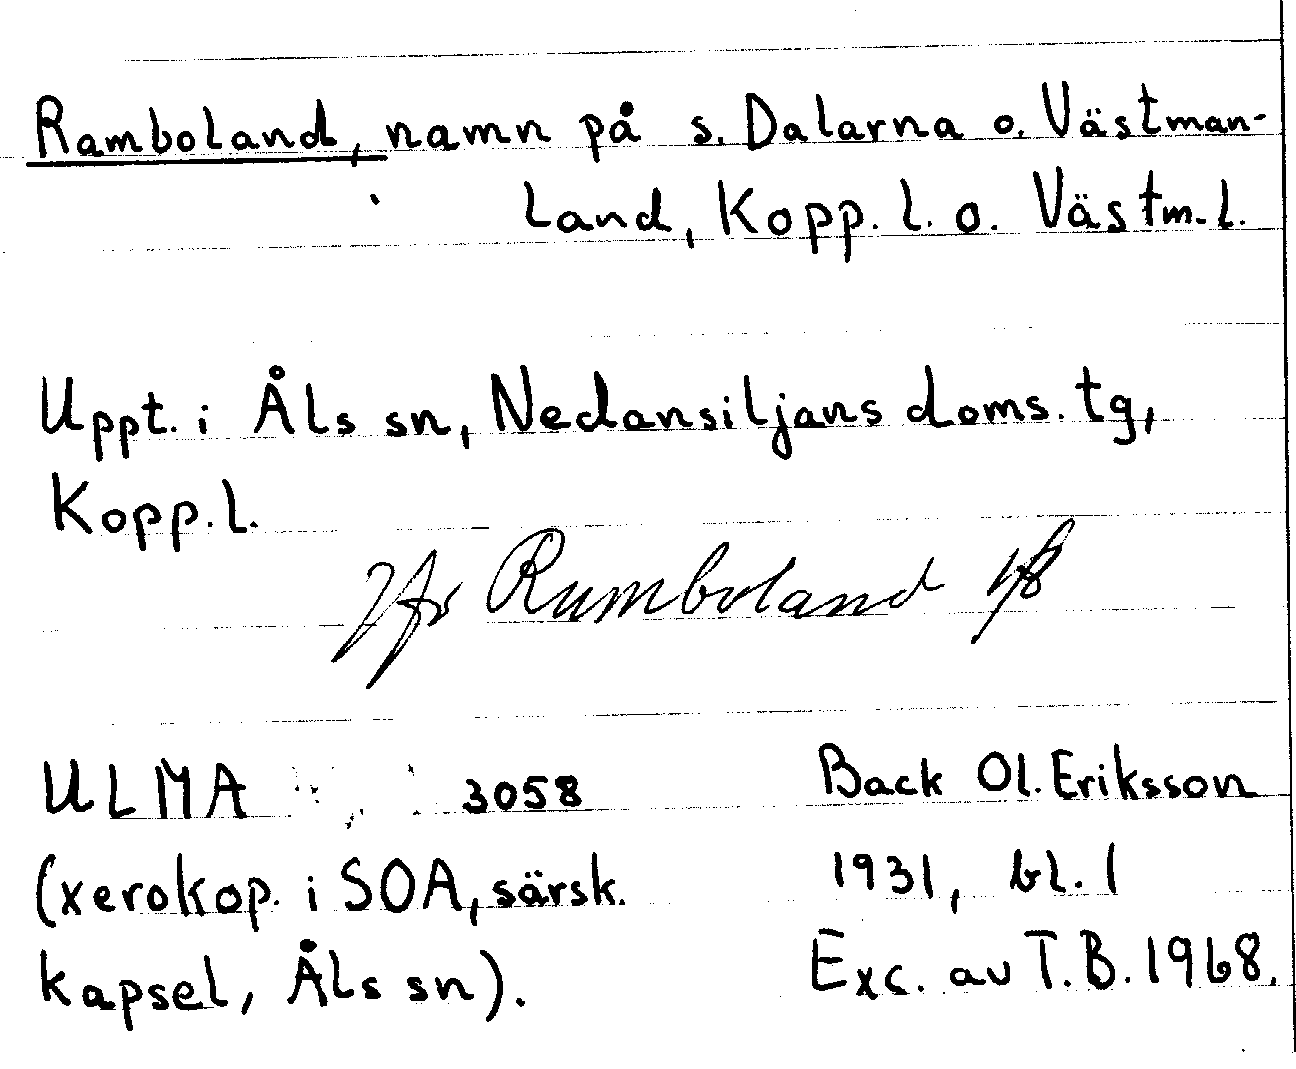 Ramboland, namn på s. Dalarna o. Västman-
land, Kopp. l. o. Västm. l.
Uppt. i Åls sn, Nedansiljans doms. tg,
Kopp. l.
Jfr Rumboland
ULMA 3058
(xerokop. i SOA, särsk.
kapsel, Åls sn).
Back Ol. Eriksson
1931, bl. 1
Exc. av T.B. 1968.